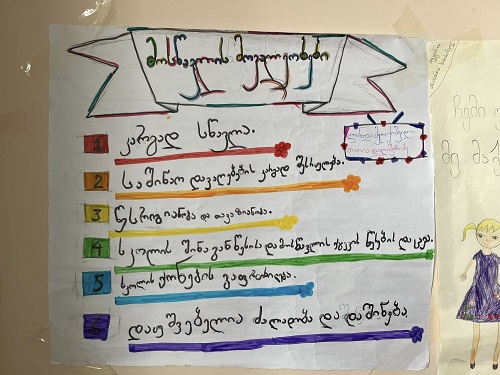 მოსწავლის მოვალეობები
1 კარგად სწავლა.
2 საშინაო დავალებების კარგად შესრულება.
3 წესრიგიანობა და თავაზიანობა.
4 სკოლის შინაგანაწესის და მოსწავლის ქცევის წესების დაცვა.
5 სკოლის ქონების გაფრთხილება.
6 დაუშვებელია ძალადობა და დაშინება
ჩემი
მე